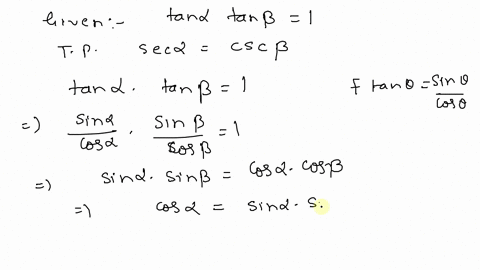 Given:- tanα tanβ = 1
T.P. secα = cscβ
tanα. tanβ = 1
f tanθ = sinθ/cosθ
=) sinα/cosα . sinβ/cosβ = 1
=) sinα. sinβ = cosα. cosβ
=) cosα = sinα. s.